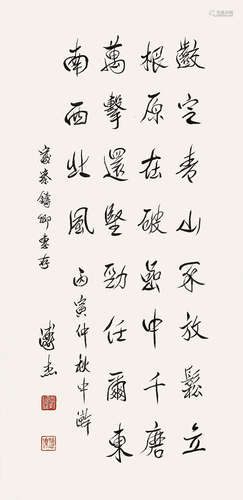 齩定青山不放鬆立
根原在破嵒中千磨
萬擊還堅勁任爾東
南西北風
丙寅仲秋中澣
鑄卿惠存
溥杰